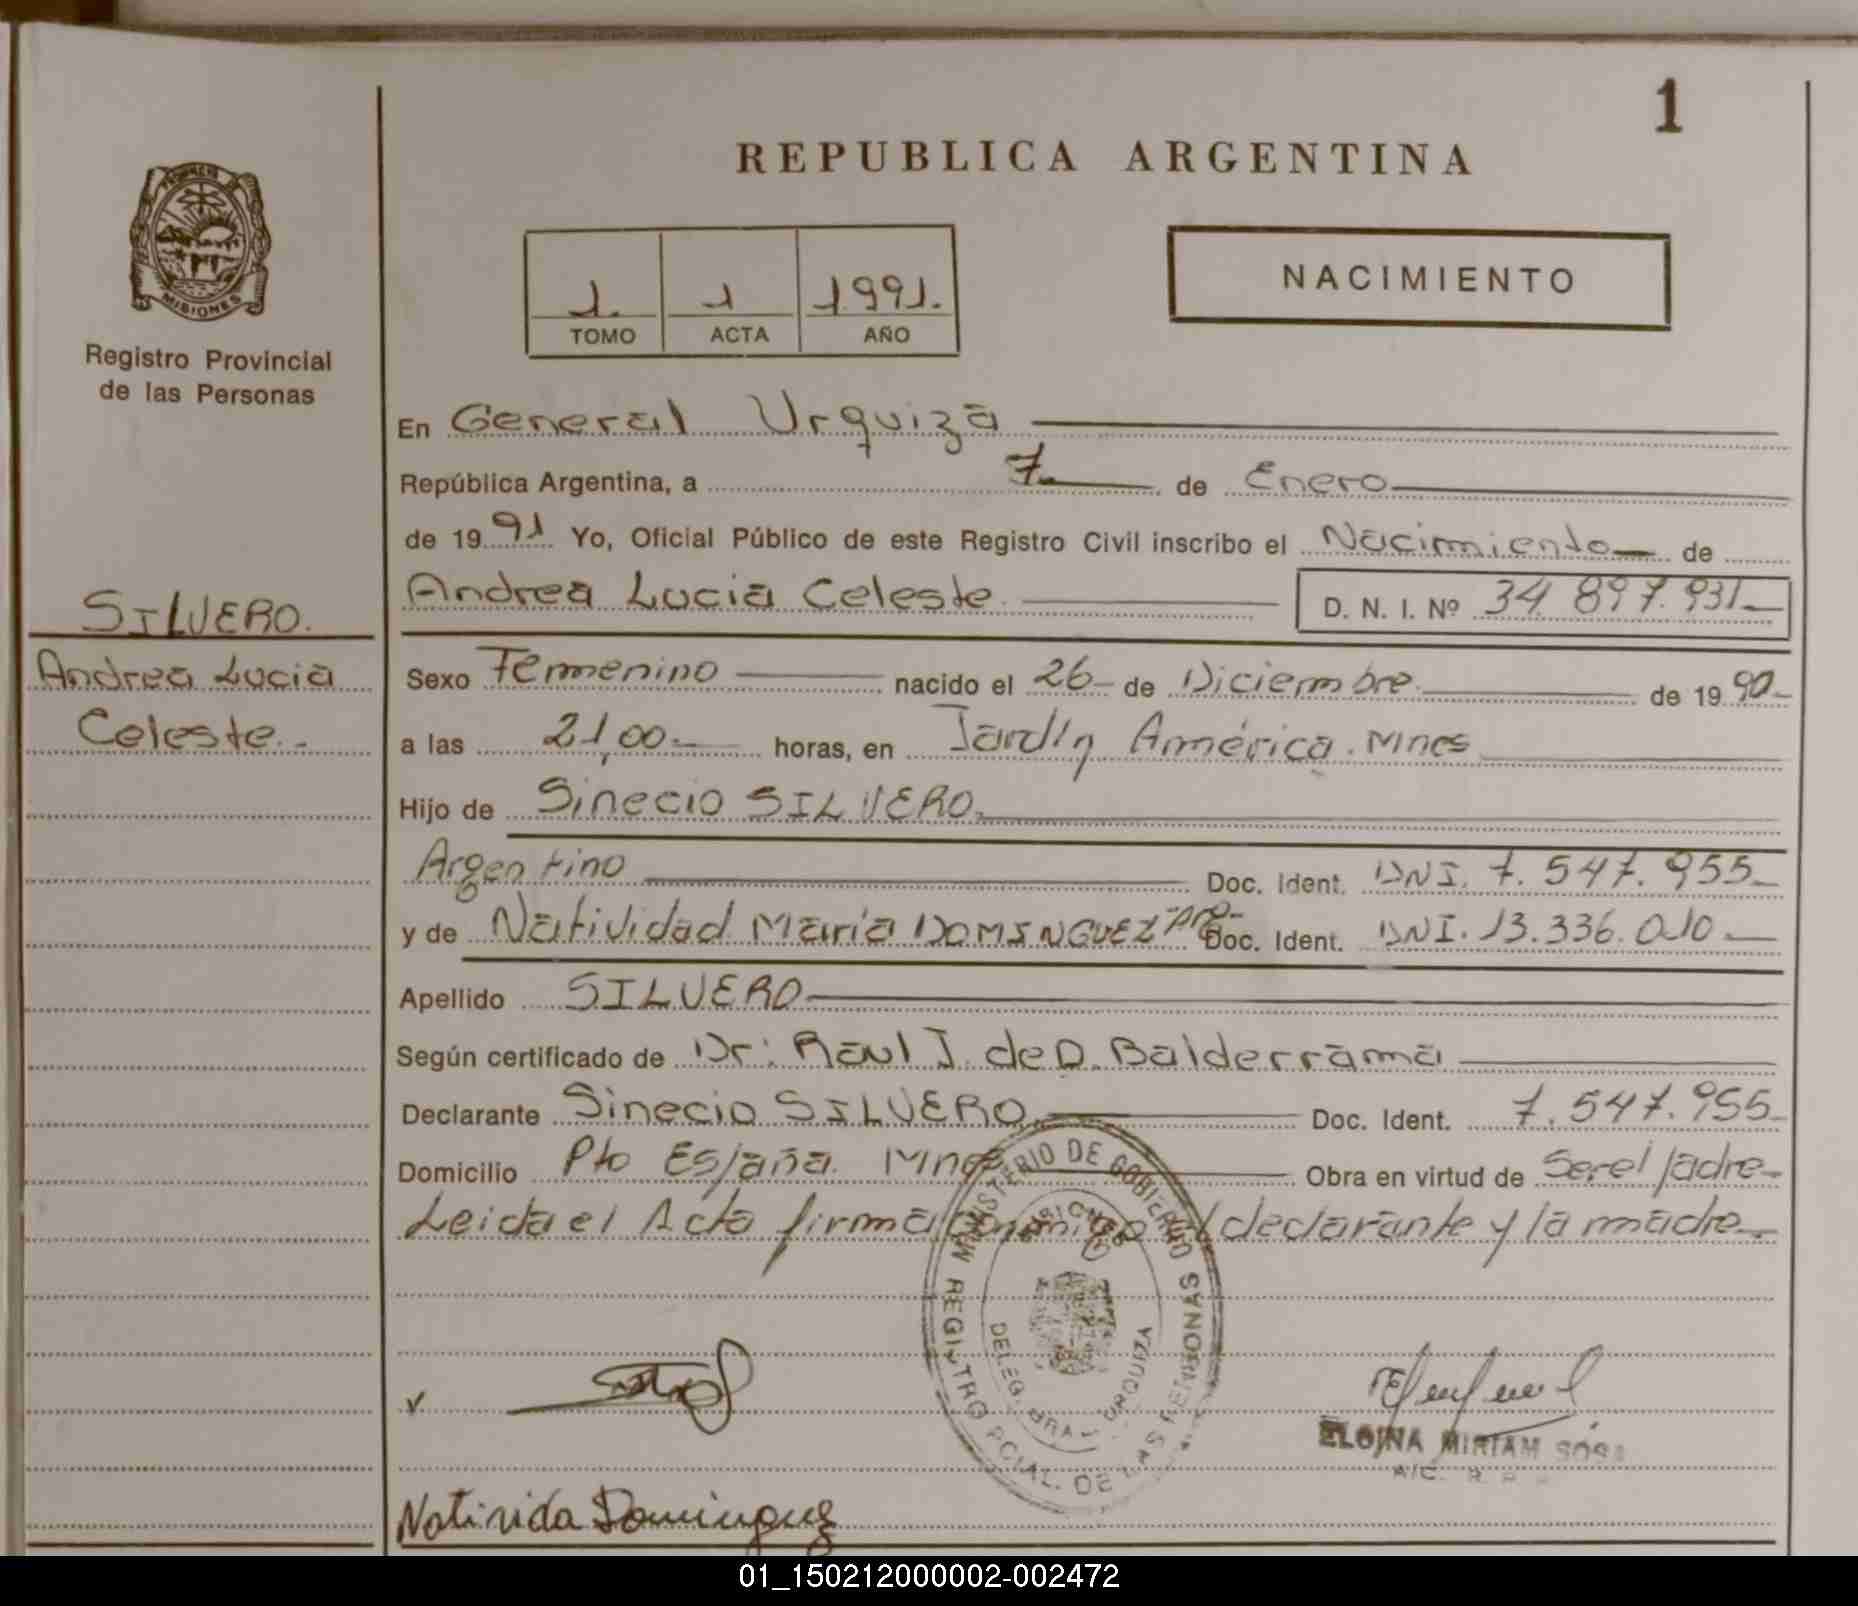 1
REPUBLICA ARGENTINA
PROVINCIA DE
MISIONES
Registro Provincial
de las Personas
1. 1 1.991.
TOMO ACTA AÑO
NACIMIENTO
En General Urquiza
República Argentina, a 7 de Enero
de 1991 Yo, Oficial Público de este Registro Civil inscribo el Nacimiento de
Andrea Lucia Celeste D. N. I. Nº 34.897.931
SILVERO.
Andrea Lucia
Celeste.
Sexo Femenino nacido el 26 de Diciembre de 1990
a las 21,00 horas, en Jardín América. Mnes
Hijo de Sinecio SILVERO
Argentino Doc. Ident. DNI. 7.547.955
y de Natividad María DOMINGUEZ Arg- Doc. Ident. DNI. 13.336.010
Apellido SILVERO
Según certificado de Dr: Raul J. de D. Balderrama
Declarante Sinecio SILVERO Doc. Ident. 7.547.955
Domicilio Pto España. Mnes Obra en virtud de Ser el padre
Leida el Acta firma conmigo el declarante y la madre
MINISTERIO DE GOBIERNO
MISIONES
REGISTRO PCIAL. DE LAS PERSONAS
DELEG. GRAL. URQUIZA
ELOINA MIRIAM SOSA
A/C. R.
Natirida Dominguez
01_150212000002-002472